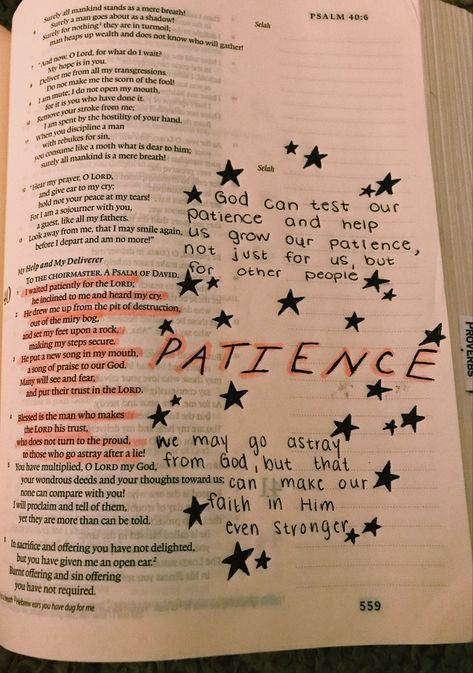 PSALM 40:6
Surely all mankind stands as a mere breath!
Surely a man goes about as a shadow!
Surely for nothing they are in turmoil;
man heaps up wealth and does not know who will gather!
Selah
7 "And now, O Lord, for what do I wait?
My hope is in you.
8 Deliver me from all my transgressions.
Do not make me the scorn of the fool!
9 I am mute; I do not open my mouth,
for it is you who have done it.
10 Remove your stroke from me;
I am spent by the hostility of your hand.
11 When you discipline a man
with rebukes for sin,
you consume like a moth what is dear to him;
surely all mankind is a mere breath!
Selah
12 "Hear my prayer, O LORD,
and give ear to my cry;
hold not your peace at my tears!
For I am a sojourner with you,
a guest, like all my fathers.
13 Look away from me, that I may smile again,
before I depart and am no more!"
My Help and My Deliverer
TO THE CHOIRMASTER. A PSALM OF DAVID.
40 I waited patiently for the LORD;
he inclined to me and heard my cry.
2 He drew me up from the pit of destruction,
out of the miry bog,
and set my feet upon a rock,
making my steps secure.
3 He put a new song in my mouth,
a song of praise to our God.
Many will see and fear,
and put their trust in the LORD.
4 Blessed is the man who makes
the LORD his trust,
who does not turn to the proud,
to those who go astray after a lie!
5 You have multiplied, O LORD my God,
your wondrous deeds and your thoughts toward us;
none can compare with you!
I will proclaim and tell of them,
yet they are more than can be told.
6 In sacrifice and offering you have not delighted,
but you have given me an open ear.2
Burnt offering and sin offering
you have not required.
Hebrew ears you have dug for me
559
God can test our
patience and help
us grow our patience,
not just for us, but
for other people
PATIENCE
we may go astray
from God, but that
can make our
faith in Him
even stronger.
PROVERBS